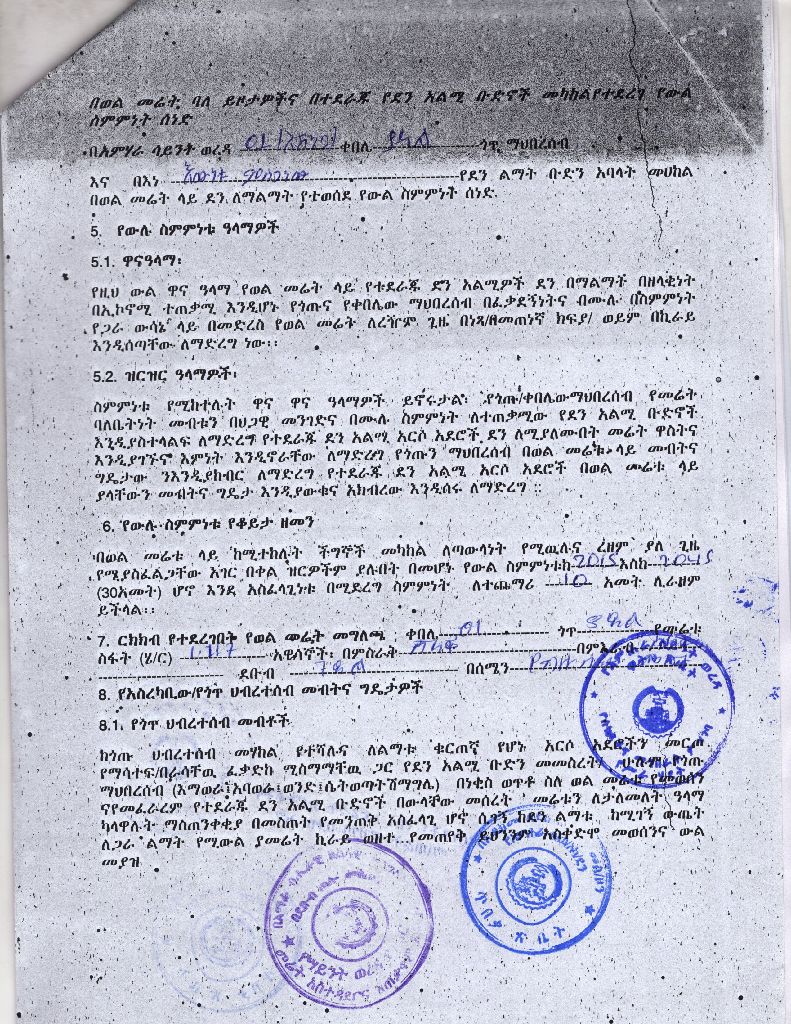 በወል መሬት ባለ ይዞታዎችና በተደራጁ የደን አልሚ ቡድኖች መካከልየተደረገ የውል
ስምምነት ሰነድ
በአምሃራ ሳይንት ወረዳ 01 ቀበሌ ጎጥ ማህበረሰብ
እና በእነ የደን ልማት ቡድን አባላት መሀከል
በወል መሬት ላይ ደን ለማልማት የተወሰደ የውል ስምምነት ሰነድ.
5. የውሉ ስምምነቱ ዓላማዎች
5.1. ዋናዓላማ፡
የዚህ ውል ዋና ዓላማ የወል መሬት ላይ የተደራጁ ደን አልሚዎች ደን በማልማት በዘላቂነት
በኢኮኖሚ ተጠቃሚ እንዲሆኑ የጎጡና የቀበሌው ማህበረሰብ በፈቃደኝነትና ብሙሉ በስምምነት
የጋራ ውሳኔ ላይ በመድረስ የወል መሬት ለረዥም ጊዜ በነጻ/በመጠነኛ ክፍያ/ ወይም በኪራይ
እንዲሰጣቸው ለማድረግ ነው፡፡
5.2. ዝርዝር ዓላማዎች፡
ስምምነቱ የሚከተሉት ዋና ዋና ዓላማዎች ይኖሩታል፡ የጎጡ/ቀበሌውማህበረሰብ የመሬት
ባለቤትነት መብቱን በህጋዊ መንገድና በሙሉ ስምምነት ለተጠቃሚው የደን አልሚ ቡድኖች
እንዲያስተላልፍ ለማድረግ የተደራጁ ደን አልሚ አርሶ አደሮች ደን ለሚያለሙበት መሬት ዋስትና
እንዲያገኙና እምነት እንዲኖራቸው ለማድረግ የጎጡን ማህበረሰብ በወል መሬቱ ላይ መብትና
ግዴታው ንእንዲያከብር ለማድረግ የተደራጁ ደን አልሚ አርሶ አደሮች በወል መሬቱ ላይ
ያላቸውን መብትና ግዴታ እንዲያውቁና አክብረው እንዲሰሩ ለማድረግ ፡፡
6. የውሉ ስምምነቱ የቆይታ ዘመን
በወል መሬቱ ላይ ከሚተከሉት ችግኞች መካከል ለጣውላነት የሚዉሉና ረዘም ያለ ጊዜ
የሚያስፈልጋቸው አገር በቀል ዝርዎችም ያሉበት በመሆኑ የውል ስምምነቱከ 2015 እስከ 2045
(30አመት) ሆኖ እንደ አስፈላጊነቱ በሚደረግ ስምምነት ለተጨማሪ 10 አመት ሊራዘም
ይችላል፡፡
7. ርክክብ የተደረገበት የወል መሬት መግለጫ ፡ ቀበሌ 01 ጎጥ የመሬቱ
ስፋት (ሄ/ር) አዋሳኞች፡ በምስራቅ በምእራብ
ደቡብ በሰሜን
8. የአስረካቢው/የጎጥ ህብረተሰብ መብትና ግዴታዎች
8.1. የጎጥ ህብረተሰብ መብቶች
ከጎጡ ህብረተሰብ መሃከል የተሻሉና ለልማቱ ቁርጠኛ የሆኑ አርሶ አደሮችን መርጦ
የማሳተፍ/በራሳቸዉ ፈቃድከ ሚስማማቸዉ ጋር የደን አልሚ ቡድን መመስረት/ ሁሉም የጎጡ
ማህበረሰብ (እማወራ፤አባወራ፤ወንድ፤ሴትወጣትሽማግሌ) በነቂስ ወጥቶ ስለ ወል መሬቱ የመወሰን
ናየመፈራረም የተደራጁ ደን አልሚ ቡድኖች በውላቸው መሰረት መሬቱን ለታለመለት ዓላማ
ካላዋሉት ማስጠንቀቂያ በመስጠት የመንጠቅ አስፈላጊ ሆኖ ሲገኝ ከደን ልማቱ ከሚገኝ ውጤት
ለጋራ ልማት የሚውል ያመሬት ኪራይ ወዘተ...የመጠየቅ ይህንንም አስቀድሞ መወሰንና ውል
መያዝ